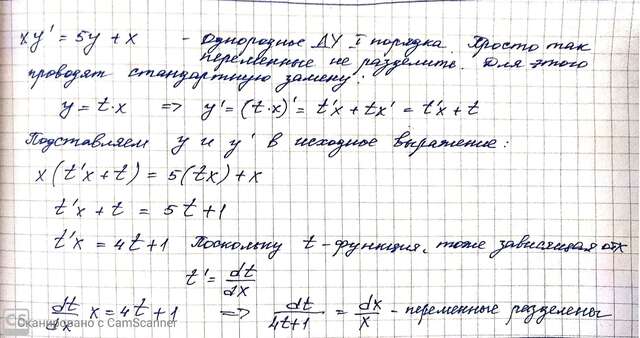 xy' = 5y + x - Однородное ДУ I порядка. Просто так
переменные не разделить. Для этого
проводят стандартную замену:
y = t·x => y' = (t·x)' = t'x + tx' = t'x + t
Подставляем y и y' в исходное выражение:
x(t'x + t) = 5(tx) + x
t'x + t = 5t + 1
t'x = 4t + 1 Поскольку t - функция, тоже зависящая от x
t' = dt/dx
dt/dx x = 4t + 1 => dt/(4t+1) = dx/x - переменные разделены
CS Сканировано с CamScanner